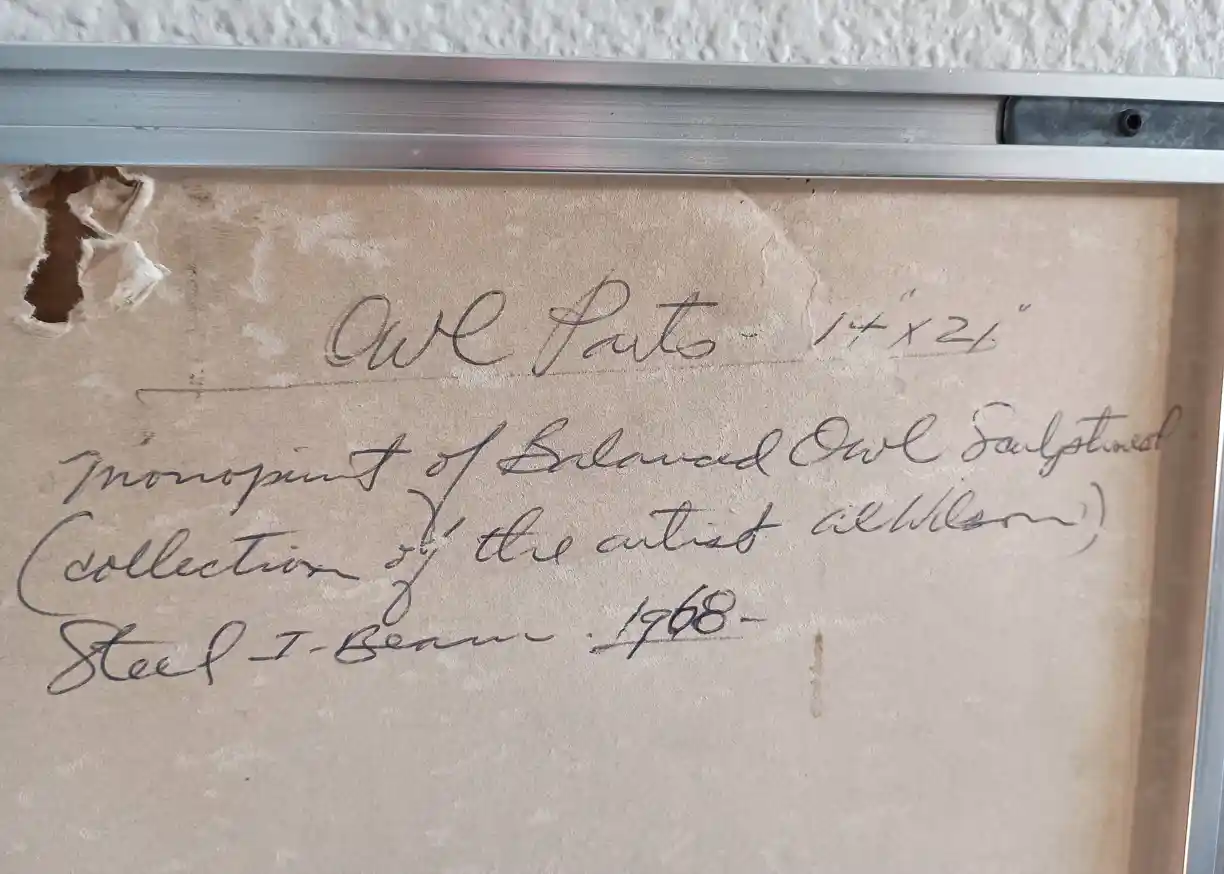 Owl Parts - 14" x 21"
monoprint of Balanced Owl Sculpture
(collection of the artist al Wilson)
Steel I-Beam. 1968-